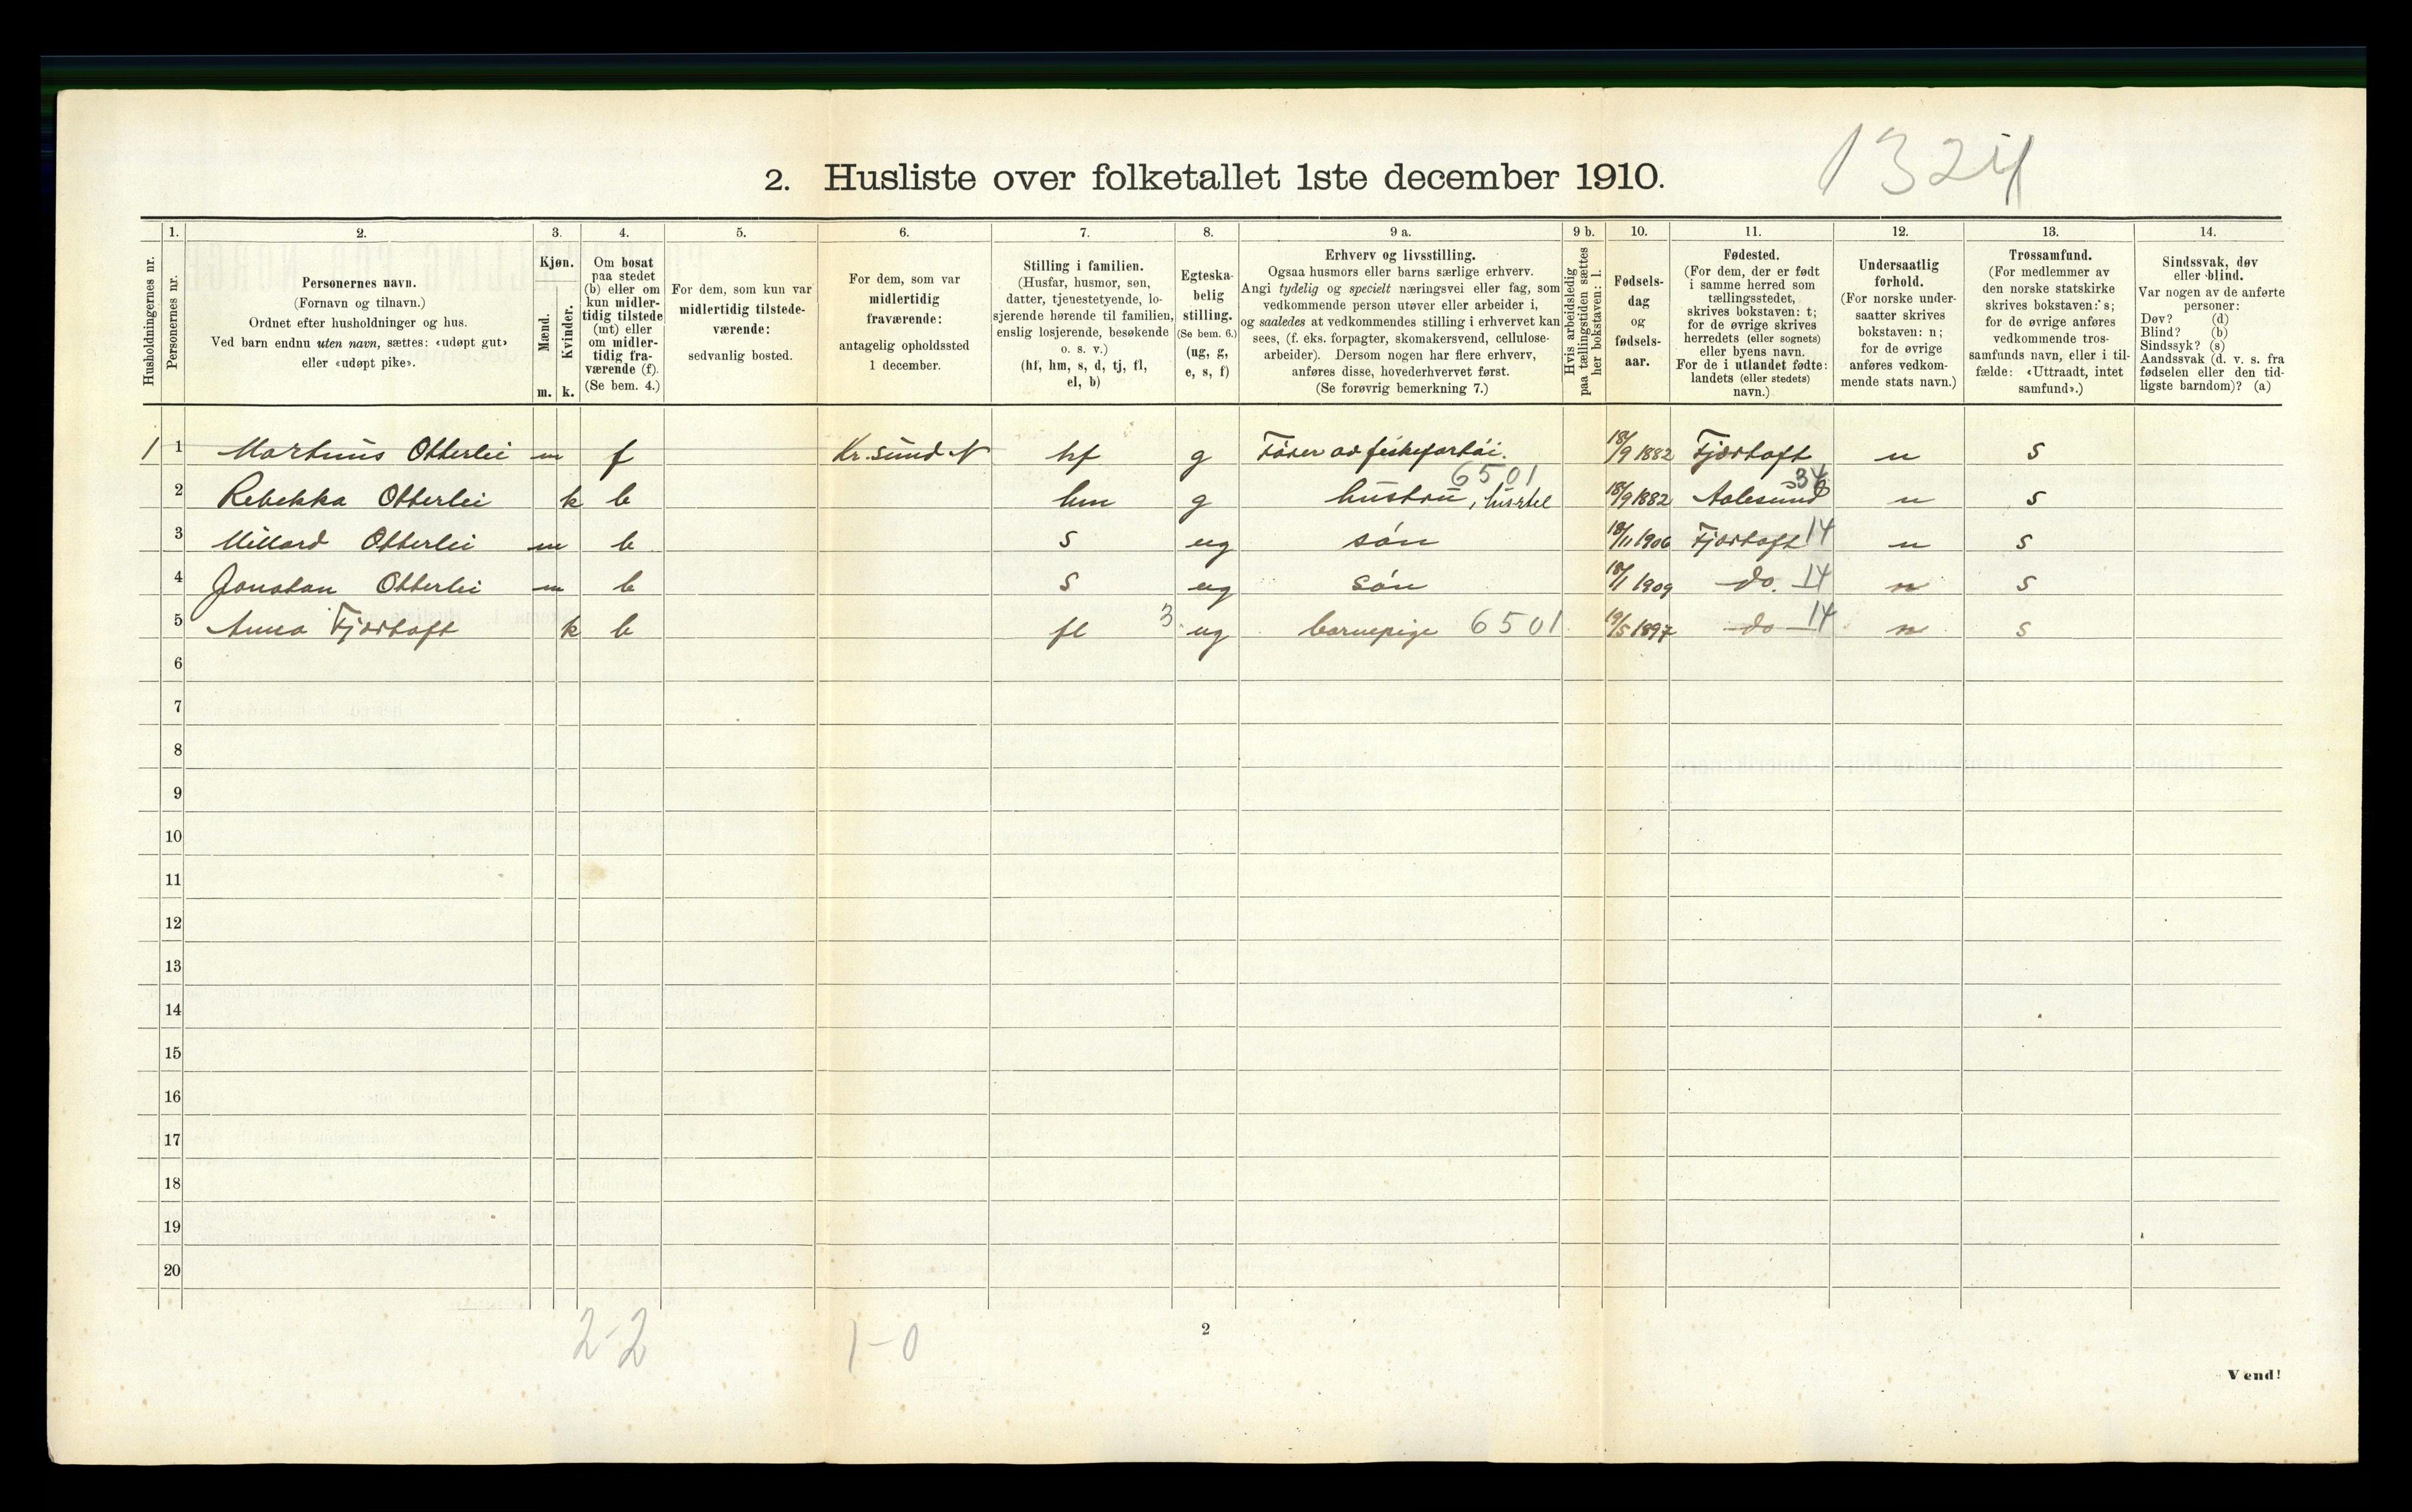 1324
2. Husliste over folketallet 1ste december 1910.
Husholdningernes nr.
1. Personernes nr.
2. Personernes navn. (Fornavn og tilnavn.) Ordnet efter husholdninger og hus. Ved barn endnu uten navn, sættes: «udøpt gut» eller «udøpt pike».
3. Kjøn. Mænd. m. Kvinder. k.
4. Om bosat paa stedet (b) eller om kun midlertidig tilstede (mt) eller om midlertidig fraværende (f). (Se bem. 4.)
5. For dem, som kun var midlertidig tilstedeværende: sedvanlig bosted.
6. For dem, som var midlertidig fraværende: antagelig opholdssted 1 december.
7. Stilling i familien. (Husfar, husmor, søn, datter, tjenestetyende, losjerende hørende til familien, enslig losjerende, besøkende o. s. v.) (hf, hm, s, d, tj, fl, el, b)
8. Egteskabelig stilling. (Se bem. 6.) (ug, g, e, s, f)
9 a. Erhverv og livsstilling. Ogsaa husmors eller barns særlige erhverv. Angi tydelig og specielt næringsvei eller fag, som vedkommende person utøver eller arbeider i, og saaledes at vedkommendes stilling i erhvervet kan sees, (f. eks. forpagter, skomakersvend, cellulosearbeider). Dersom nogen har flere erhverv, anføres disse, hovederhvervet først. (Se forøvrig bemerkning 7.)
9 b. Hvis arbeidsledig paa tællingstiden sættes her bokstaven: l.
10. Fødselsdag og fødselsaar.
11. Fødested. (For dem, der er født i samme herred som tællingsstedet, skrives bokstaven: t; for de øvrige skrives herredets (eller sognets) eller byens navn. For de i utlandet fødte: landets (eller stedets) navn.)
12. Undersaatlig forhold. (For norske undersaatter skrives bokstaven: n; for de øvrige anføres vedkommende stats navn.)
13. Trossamfund. (For medlemmer av den norske statskirke skrives bokstaven: s; for de øvrige anføres vedkommende trossamfunds navn, eller i tilfælde: «Uttraadt, intet samfund».)
14. Sindssvak, døv eller blind. Var nogen av de anførte personer: Døv? (d) Blind? (b) Sindssyk? (s) Aandssvak (d. v. s. fra fødselen eller den tidligste barndom)? (a)
1 1 Martinus Otterlei m f Kr.sund N hf g Fører av fiskefartøi. 18/9 1882 Fjørtoft n s
2 Rebekka Otterlei k b hm g hustru, husstel 6501 18/9 1882 Aalesund 34 n s
3 Millard Otterlei m b s ug søn 18/11 1906 Fjørtoft 14 n s
4 Jonatan Otterlei m b s ug søn 18/1 1909 do. 14 n s
5 Anna Fjørtoft k b fl 3 ug barnepige 6501 19/5 1897 do 14 n s
6
7
8
9
10
11
12
13
14
15
16
17
18
19
20
2-2 1-0
2
Vend!